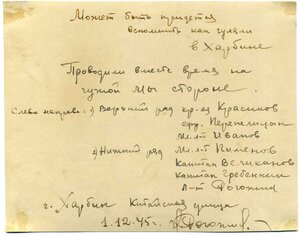 Может быть придется
вспомнить как гуляли
в Харбине
Проводили вместе время на
чужой мы стороне.
Слево направо: 1) Верхний ряд кр-ац Красиков
ефр Перепечицын
Мл. л-т Иванов
2) Нижний ряд Мл. л-т Пименов
Капитан Величканов
Капитан Гребенкин
Л-т Рогожин
г. Харбин Китайская улица
1.12.45 г.